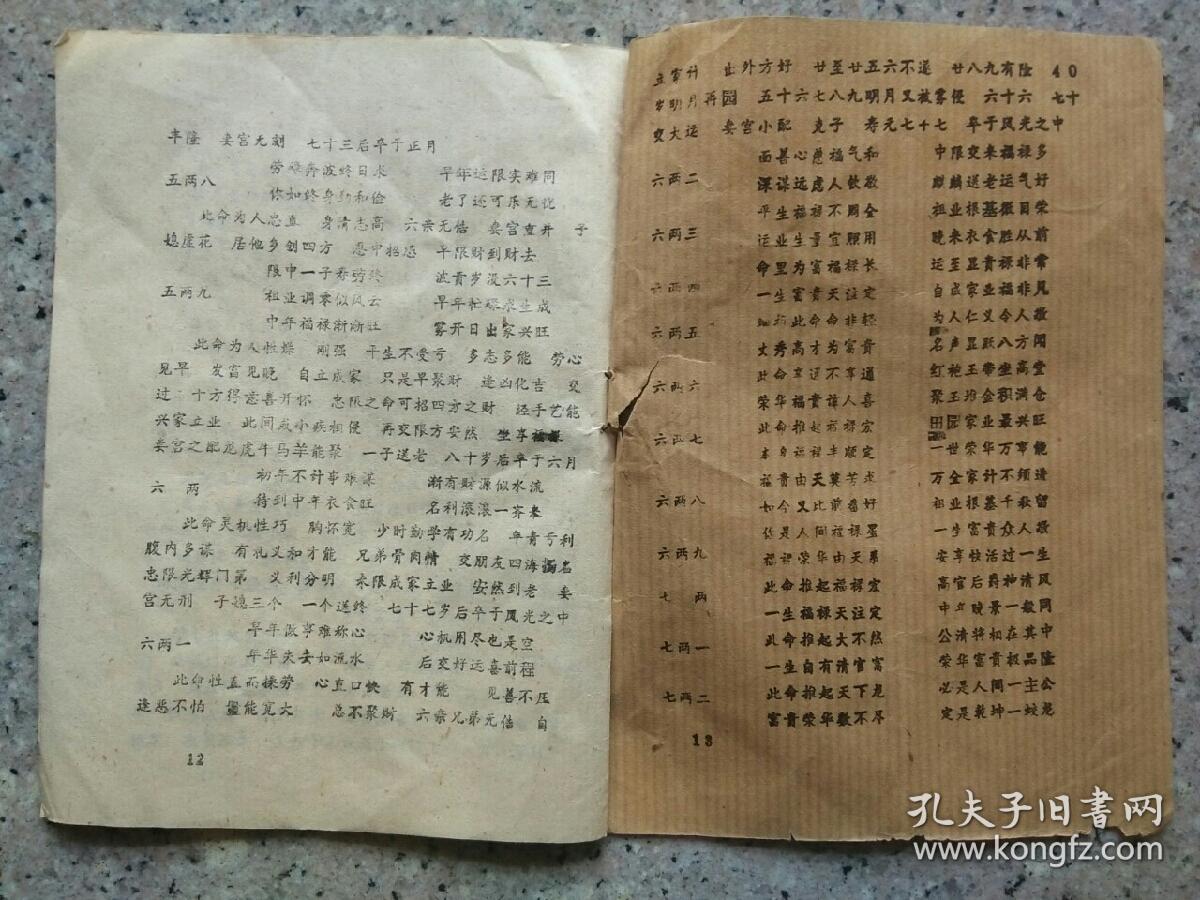 丰隆 妻宫无刻 七十三后卒于正月
劳碌奔波终日水 早年运限实难同
五两八
你如终身勤和俭 老了还可乐无忧
此命为人忠直 身清志高 六亲无信 妻宫重井 子
媳虚花 居他乡创四方 忠中招怨 平限财到财去
限中一子寿劳终 波青岁没六十三
五两九 祖业调零似风云 早年忙碌求生成
中年福禄渐渐旺 雾开日出家兴旺
此命为人性燥 刚强 平生不受亏 多志多能 劳心
见早 发富见晚 自立成家 只是早聚财 逢凶化吉 交
过三十方得意喜开怀 忠限之命可招四方之财 经手艺能
兴家立业 此间或小疾相侵 再交限方安然 坐享福禄
妻宫之配龙虎牛马羊能聚 一子送老 八十岁后卒于六月
初年不计事难谋 渐有财源似水流
六 两
待到中年衣食旺 名利滚滚一齐来
此命灵机性巧 胸怀宽 少时勤学有功名 年青亏利
腹内多谋 有礼义和才能 兄弟骨肉情 交朋友四海扬名
忠限光辉门第 义利分明 末限成家立业 安然到老 妻
宫无刑 子媳三个 一个送终 七十七岁后卒于风光之中
早年做事难称心 心机用尽也是空
六两一
年华失去如流水 后交好运喜前程
此命性直而操劳 心直口快 有才能 见善不压
逢恶不怕 量能宽大 总不聚财 六亲兄弟无信 自
12
立家计 出外方好 廿至廿五六不遂 廿八九有险 40
岁明月再园 五十六七八九明月又被雾侵 六十六 七十
交大运 妻宫小配 克子 寿元七十七 卒于风光之中
面善心慈福气和 中限交来福禄多
六两二
深谋远虑人钦敬 麒麟送老运气好
平生福禄不周全 祖业根基微目荣
六两三
运业生量宜照用 晚来衣食胜从前
命里为富福禄长 运至显贵禄非常
六两四
一生富贵天注定 自成家业福非凡
细称此命命非轻 为人仁义令人敬
六两五
文秀高才为富贵 名声显跃八方闻
此命享通不享通 红袍玉带坐高堂
六两六
荣华福贵谁人喜 聚玉堆金积满仓
此命推起福禄宏 田园家业最兴旺
六两七
本身福禄丰顺定 一世荣华万事能
福贵由天莫苦求 万全家计不须逢
六两八
如今又比前番好 祖业根基千秋留
你是人间福禄星 一生富贵众人敬
六两九
福禄荣华由天系 安享快活过一生
此命推起福禄宏 高官后爵神清风
七 两
一生福禄天注定 中年晚景一般同
此命推起大不然 公清将相在其中
七两一
一生自有清官富 荣华富贵极品隆
七两二 此命推起天下龙 必是人间一主公
富贵荣华数不尽 定是乾坤一蛟龙
13
孔夫子旧书网
www.kongfz.com